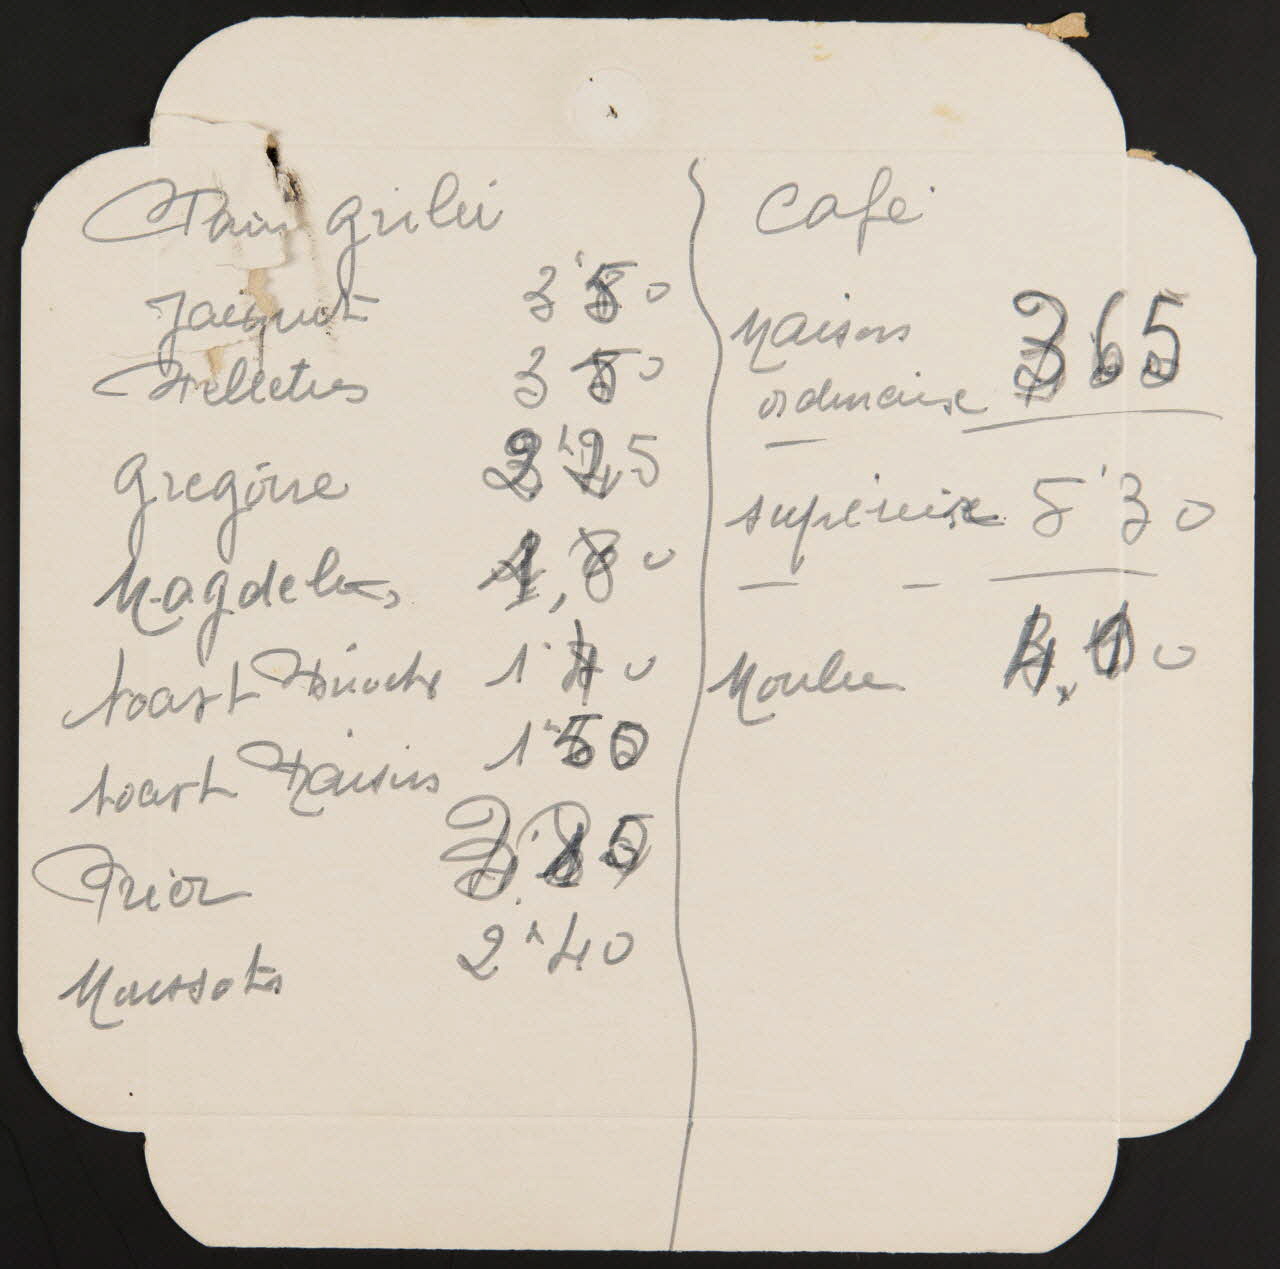 Pain grillé
Jacquet 3'50
3 50
Grégoire 2'25
Magdeleine 1,80
toast Brioche 1'70
toast Raisins 1'50
Prior
Moussots 2'40
Café
Maison
ordinaire 365
supérieure 5'30
Moulu 4,10